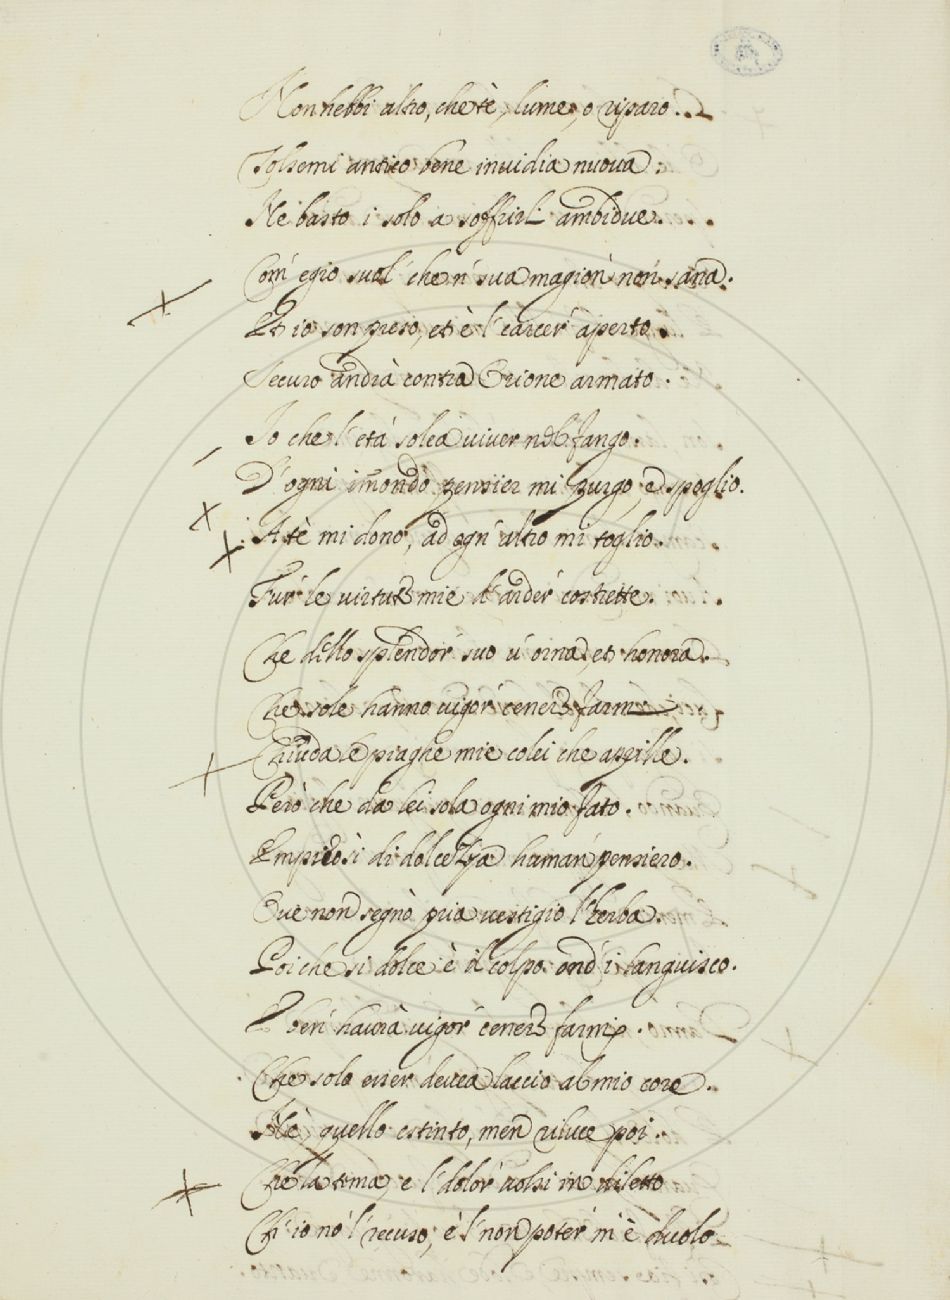 Non hebbi altro, che tè, lume, o riparo.
Tolsemi antico bene invidia nuova.
Ne basto i solo a soffrirl' ambidue.
Com' egro suol' che n' sua magion' non sana.
Et io son preso, et è l' carcer' aperto.
Securo andrà contra Orione armato.
Io che l' età solea viver nel fango.
D' ogni immondo pensier mi purgo, e spoglio.
A tè mi dono, ad ogn' altro mi toglio.
Fur' le virtuti mie d' arder' costrette.
Che dello splendor' suo v' orna, et honora.
Che sole hanno vigor' cenere farmi
Chiuda le piaghe mie colei che aprille.
Però che da lei sola ogni mio fato.
Empieòsi di dolcezza human' pensiero.
Ove non segnò pria vestigio l' herba.
Poi che si dolce è il colpo ond' i languisco.
E ben' havrà vigor' cenere farmi.
Che solo esser devea laccio al mio core.
Nè quello estinto, men viluce poi.
Che la tema, e l' dolor' volsi in diletto
Ch' io nò l' recuso, è l' non poter' m' è duolo